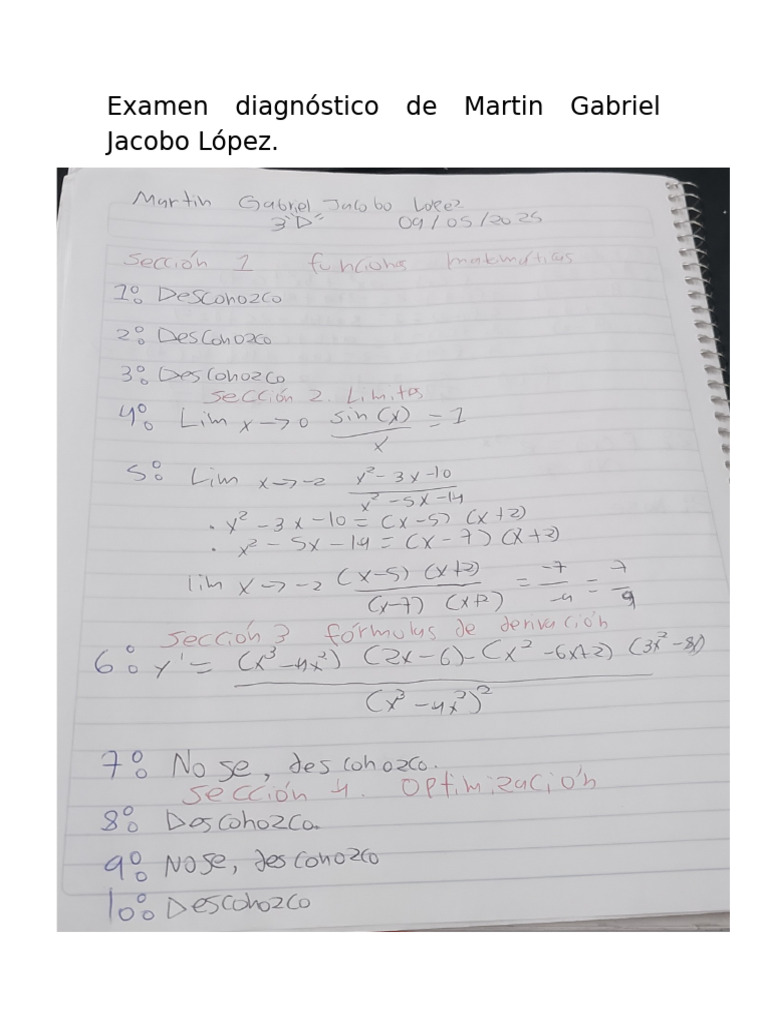 Examen diagnóstico de Martin Gabriel
Jacobo López.
Martin Gabriel Jacobo Lopez
3°"D" 09/05/2025
Sección 1 funciones matemáticas
1°: Desconozco
2°: Desconozco
3°: Desconozco
Sección 2. Limites
4°: Lim x→0 sin(x)/x = 1
5°: Lim x→-2 x²-3x-10/x²-5x-14
• x²-3x-10=(x-5)(x+2)
• x²-5x-14=(x-7)(x+2)
lim x→-2 (x-5)(x+2)/(x-7)(x+2) = -7/-9 = 7/9
Sección 3 fórmulas de derivación
6°: y'= (x³-4x²)(2x-6)-(x²-6x+2)(3x²-8x)/(x³-4x²)²
7°: No se, desconozco.
Sección 4. Optimización
8°: Desconozco.
9°: No se, desconozco
10°: Desconozco